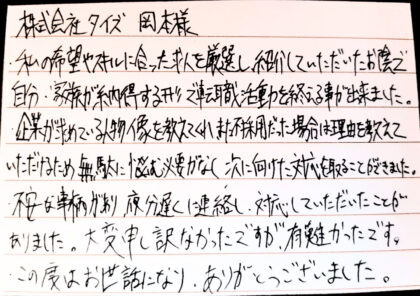 株式会社タイズ 岡本様
・私の希望やスキルに合った求人を厳選し、紹介していただいたお陰で
自分・家族が納得する形で転職活動を終える事が出来ました。
・企業が求めている人物像を教えてくれ、また不採用だった場合は理由を教えて
いただけるため、無駄に悩む必要がなく次に向けた対応を取ることができました。
・不安な事柄があり夜分遅くに連絡し、対応していただいたことが
ありました。大変申し訳なかったですが、有難かったです。
・この度はお世話になり、ありがとうございました。